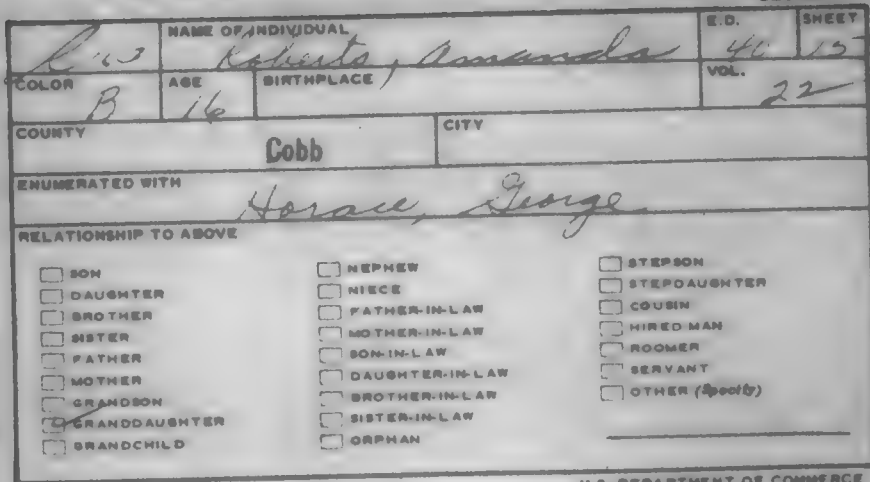 NAME OF INDIVIDUAL E.D. SHEET
Roberts, Amanda 40 15
COLOR AGE BIRTHPLACE VOL.
B 16 22
COUNTY CITY
Cobb
ENUMERATED WITH
Horace, George
RELATIONSHIP TO ABOVE
SON
DAUGHTER
BROTHER
SISTER
FATHER
MOTHER
GRANDSON
GRANDDAUGHTER
GRANDCHILD
NEPHEW
NIECE
FATHER-IN-LAW
MOTHER-IN-LAW
SON-IN-LAW
DAUGHTER-IN-LAW
BROTHER-IN-LAW
SISTER-IN-LAW
ORPHAN
STEPSON
STEPDAUGHTER
COUSIN
HIRED MAN
ROOMER
SERVANT
OTHER (Specify)
U.S. DEPARTMENT OF COMMERCE